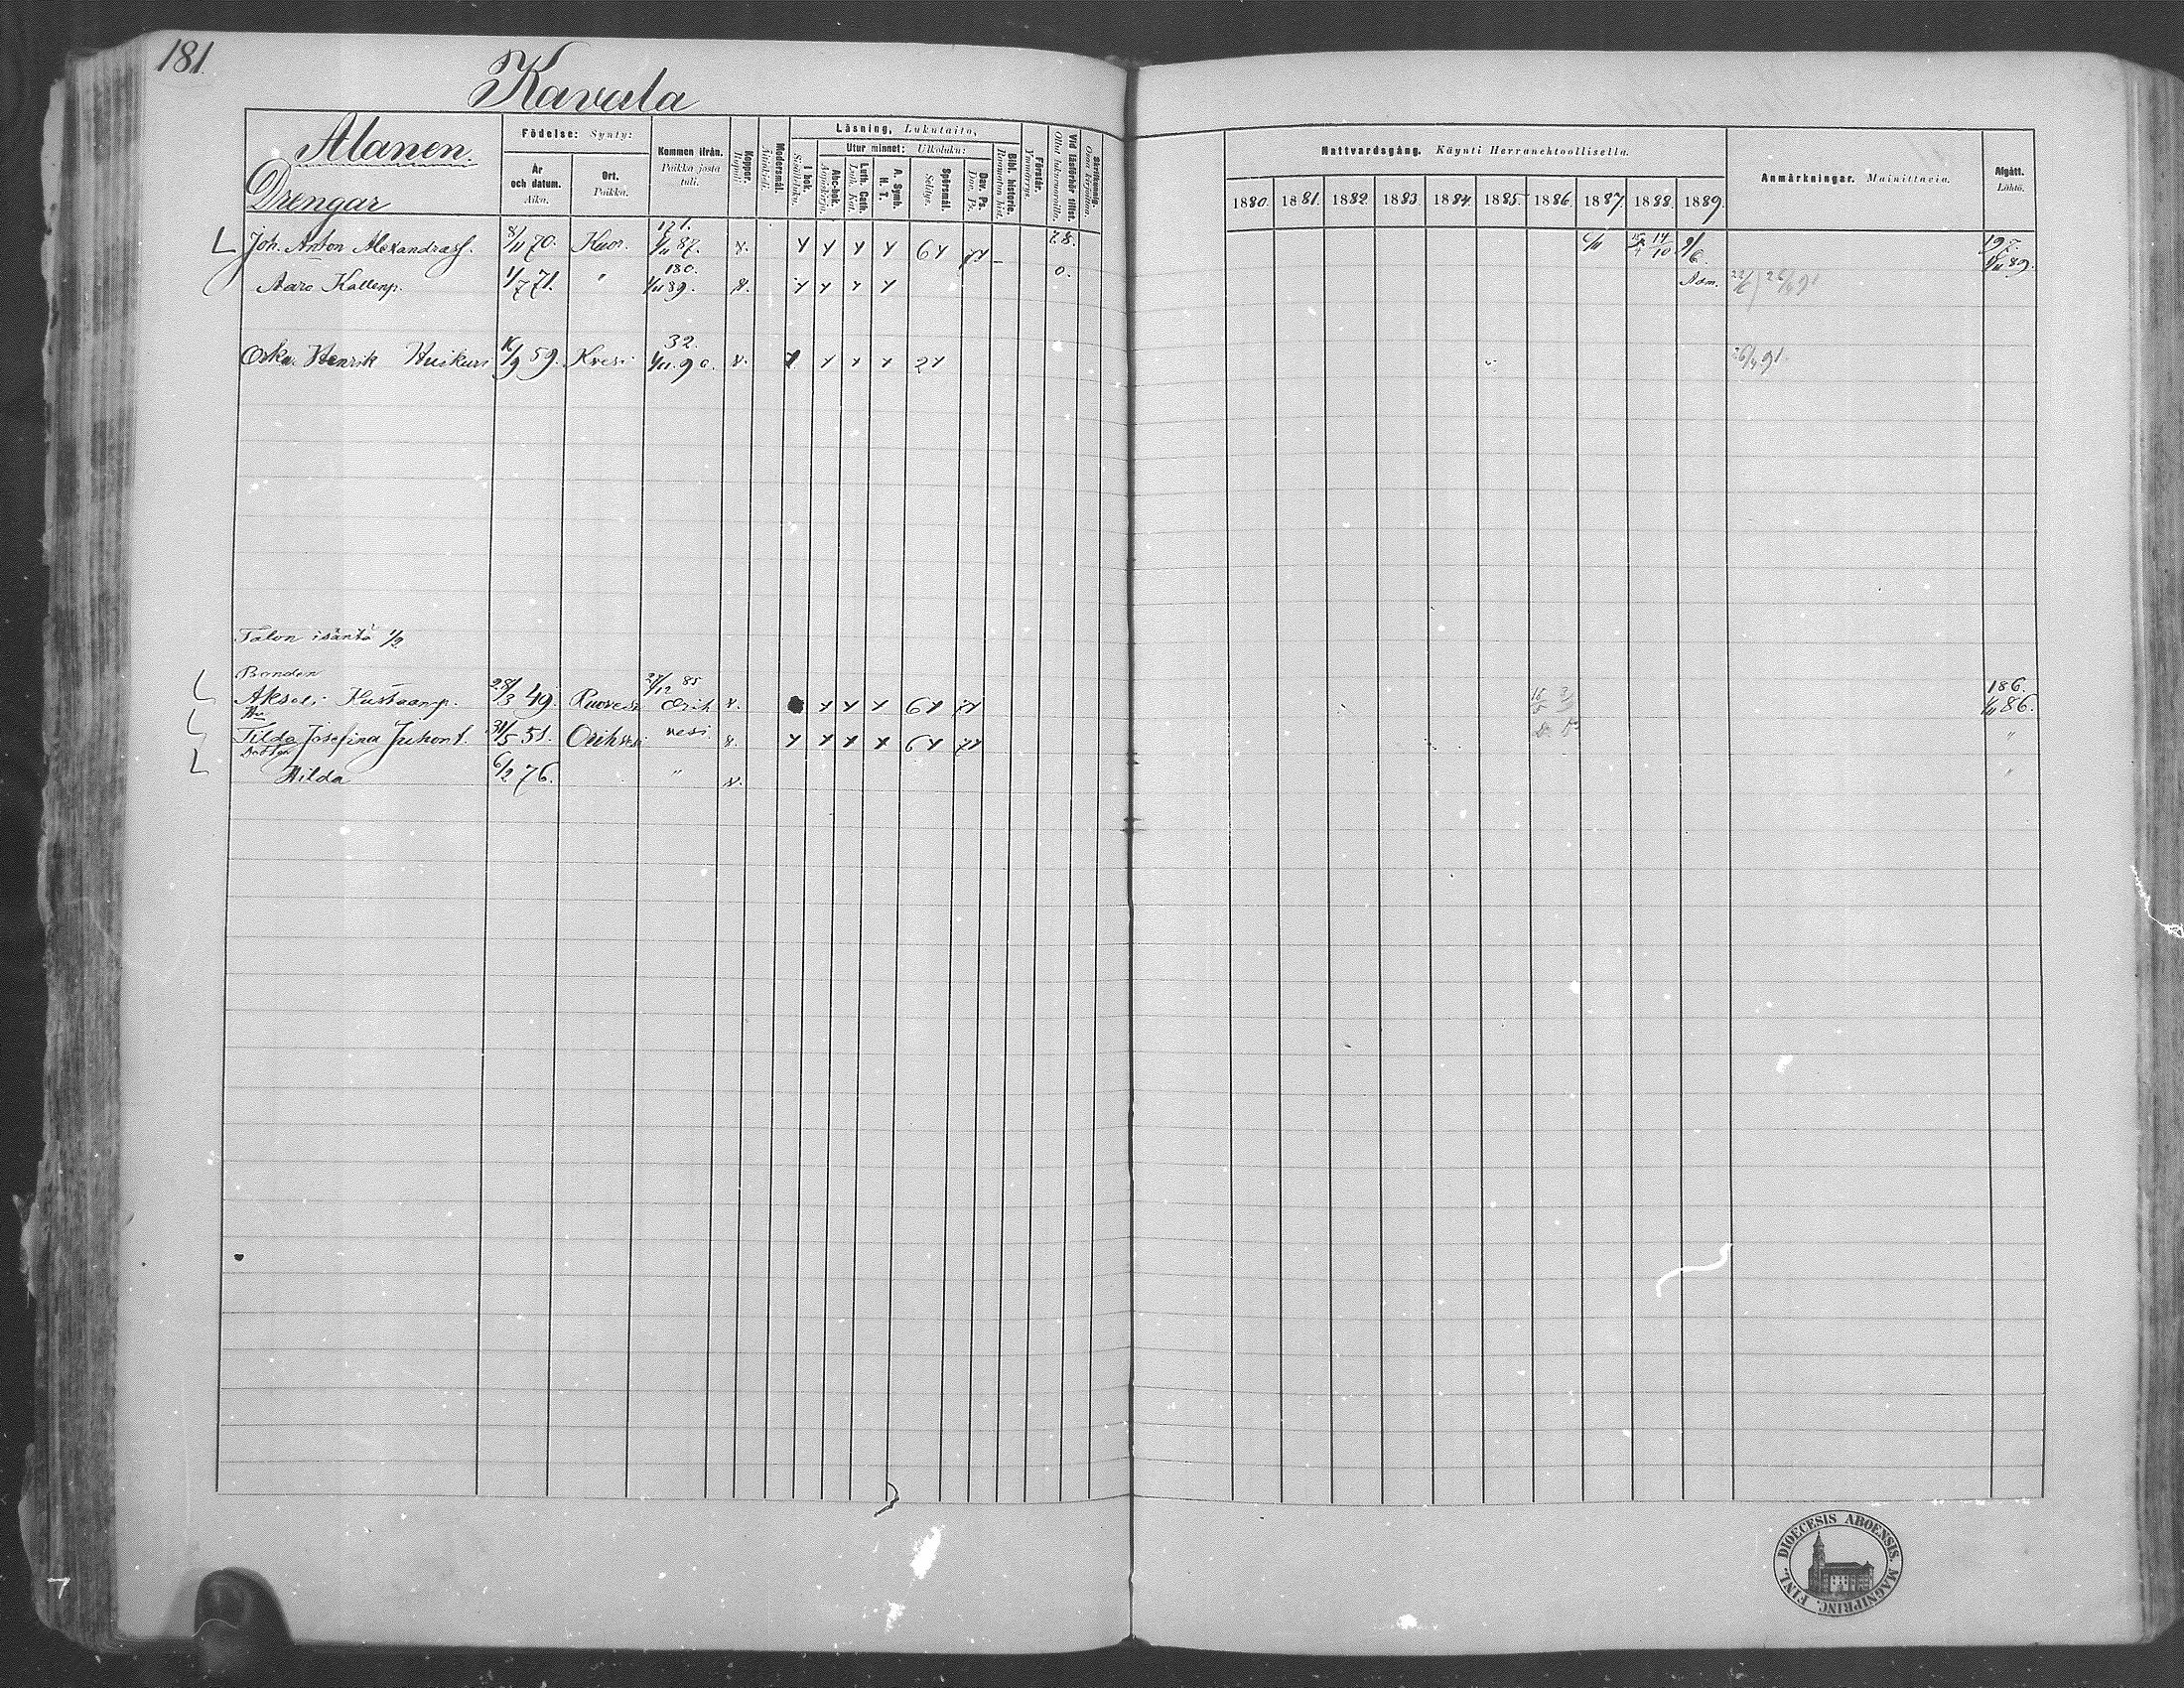 181.
Kavala
Alanen.
Drengar
Födelse: Synty:
År och datum. Aika.
Ort. Paikka.
Kommen ifrån. Paikka josta tuli.
Koppor. Rupuli.
Modersmål. Äitinkieli.
Läsning, Lukutaito,
I bok. Sisältluku.
Utur minnet: Ulkoluku:
Abc-bok. Aapiskirja.
Luth. Cath. Luth. Kat.
A. Symb. H. T.
Spörsmål. Selitys.
Dav. Ps. Dav. Ps.
Bibl. historie. Raamatun hist.
Förstår. Ymmärrys.
Vid läsförhör tillst. Ollut lukuvuoroilla.
Skrifkunnig. Osaa kirjoittaa.
Nattvardsgång. Käynti Herranehtoollisella.
1880. 1881. 1882 1883 1884 1885. 1886. 1887. 1888. 1889.
Anmärkningar. Mainittavia.
Afgått. Lähtö.
Joh. Anton Alexandersf. 8/11 70. Kuor. 121. 1/11 87. v. y y y y 6y 7y 7.8. 6/11 14/10 9/6 197. 1/11 89.
Aaro Kallenp. 1/7 71. " 180. 1/11 89. v. y y y y 0. Adm. 22/6 26/4 91
Oska Henrik Huikuri 16/9 59. Kvesi 32. 1/11. 90. v. y y y y 2y 26/4 91.
Talon isäntä 1/2
Bonden
Akseli Kustaanp. 28/3 49. Ruovesi 27/12 85 Orih v. y y y 6y 7y 186. 1/11 86.
Hu
Tilda Josefina Juhont. 31/5 51. Orihvesi vesi v. y y y y 6y 7y "
dotter
Hilda 6/2 76. " v. "
FINL. DIOECESIS ABOENSIS. MAGNIPRINC.